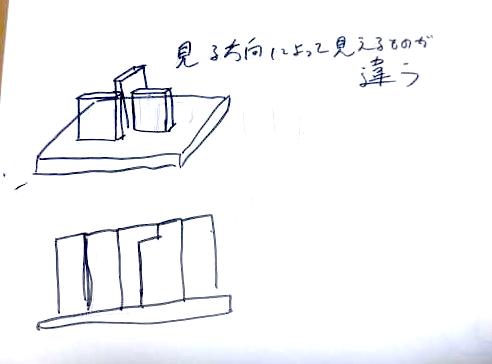 見る方向によって見えるものが
違う